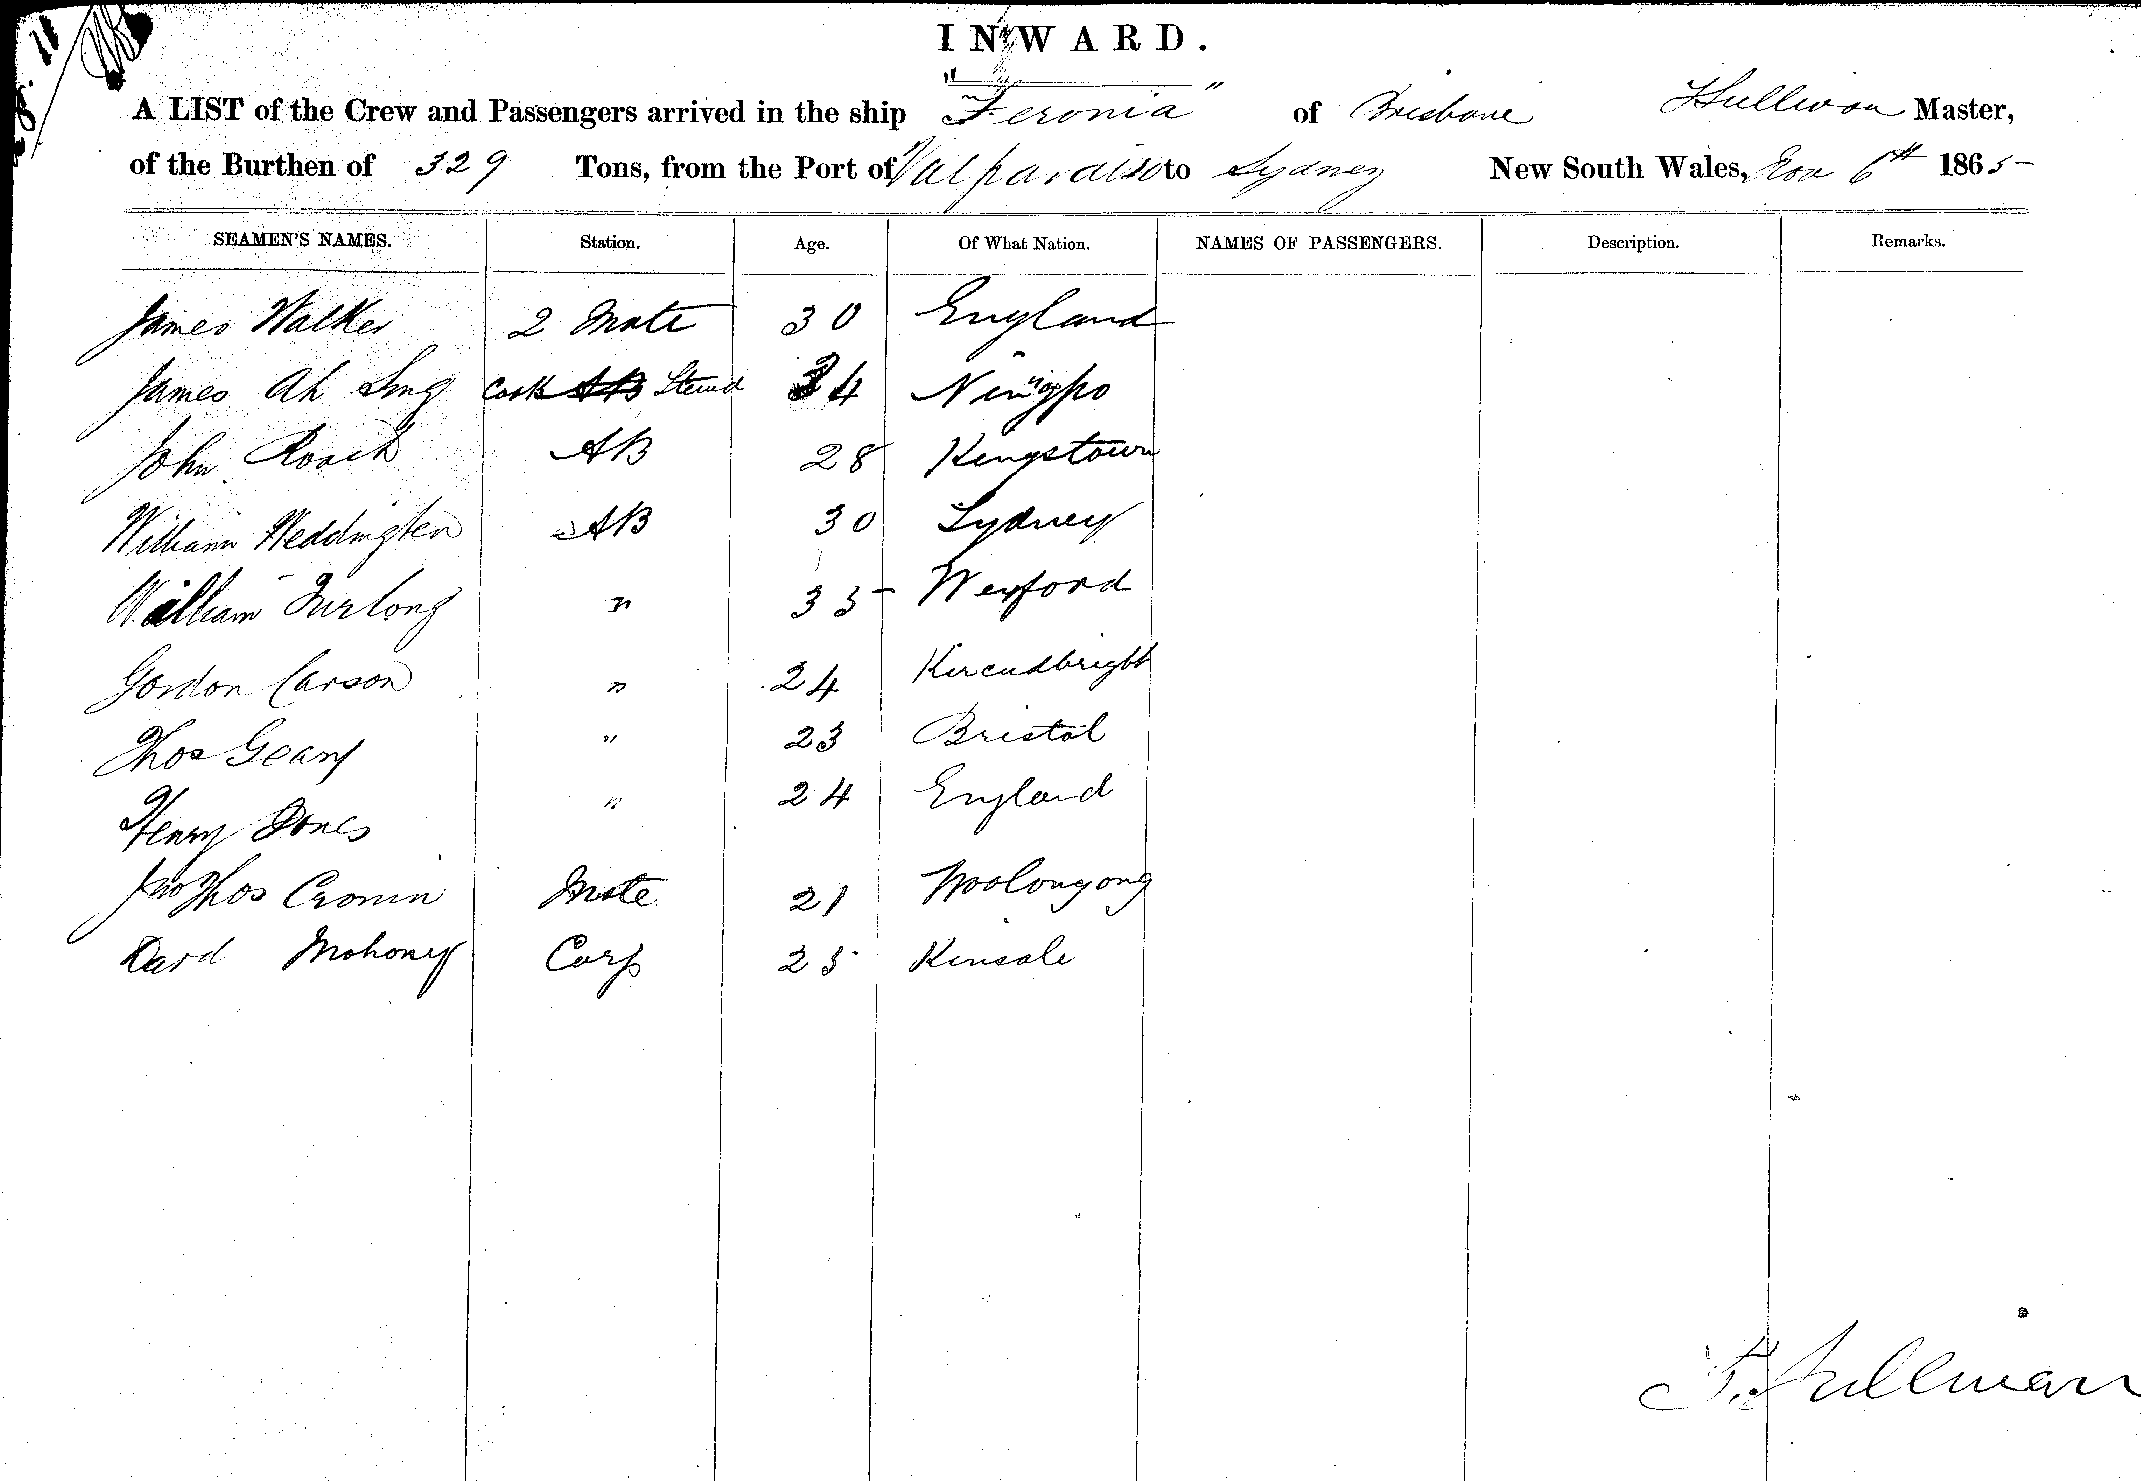 INWARD.
A LIST of the Crew and Passengers arrived in the ship "Feronia" of Brisbane Master,
of the Burthen of 329 Tons, from the Port of Valparaiso to Sydney New South Wales, Nov 6th 1865
SEAMEN'S NAMES. Station. Age. Of What Nation. NAMES OF PASSENGERS. Description. Remarks.
James Walker 2 Mate 30 England
James Ah Ling Cook AB Stewd 34 Ningpo
John Roach AB 28 Kingstown
William Weddington AB 30 Sydney
William Furlong " 35 Wexford
Gordon Carson " 24 Kircudbright
Thos Geary " 23 Bristol
Henry Jones " 24 England
Jno Thos Cronin Mate 21 Woolongong
Mahoney Carp 25 Kinsale